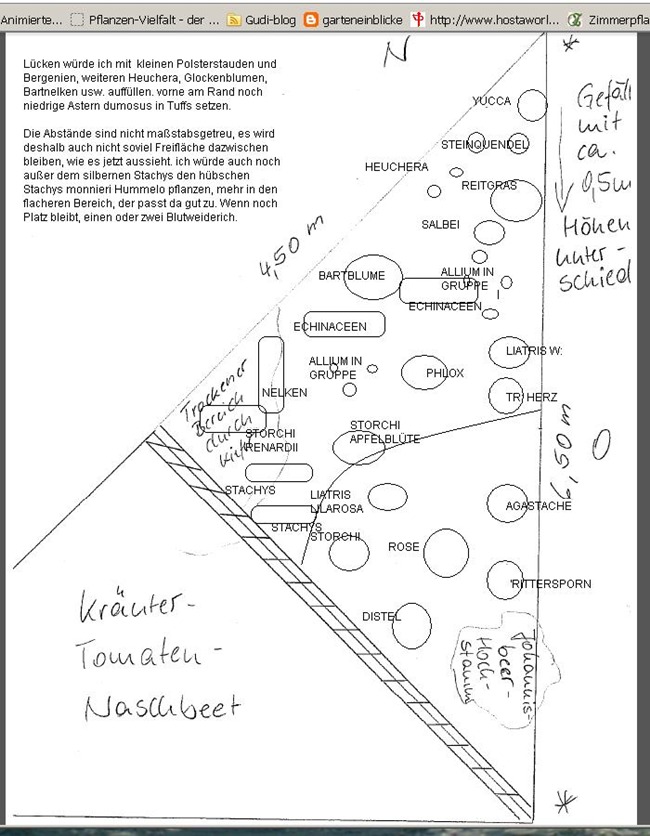 Animierte... Pflanzen-Vielfalt - der ... Gudi-blog garteneinblicke http://www.hostaworl... Zimmerpfla
Lücken würde ich mit kleinen Polsterstauden und
Bergenien, weiteren Heuchera, Glockenblumen,
Bartnelken usw. auffüllen. vorne am Rand noch
niedrige Astern dumosus in Tuffs setzen.
Die Abstände sind nicht maßstabsgetreu, es wird
deshalb auch nicht soviel Freifläche dazwischen
bleiben, wie es jetzt aussieht. ich würde auch noch
außer dem silbernen Stachys den hübschen
Stachys monnieri Hummelo pflanzen, mehr in den
flacheren Bereich, der passt da gut zu. Wenn noch
Platz bleibt, einen oder zwei Blutweiderich.
N
YUCCA
Gefäll
mit
ca.
0,5m
Höhen
unter-
schied
STEINQUENDEL
HEUCHERA
REITGRAS
SALBEI
4,50 m
BARTBLUME
ALLIUM IN
GRUPPE
ECHINACEEN
ECHINACEEN
LIATRIS W:
ALLIUM IN
GRUPPE
PHLOX
NELKEN
TR. HERZ
Trockener
Bereich
durch
Kies
STORCHI
APFELBLÜTE
6,50 m
O
STORCHI
RENARDII
STACHYS
LIATRIS
LILAROSA
AGASTACHE
STACHYS
STORCHI
ROSE
RITTERSPORN
DISTEL
Johannis-
beer-
Hoch-
stamm
Kräuter-
Tomaten-
Naschbeet